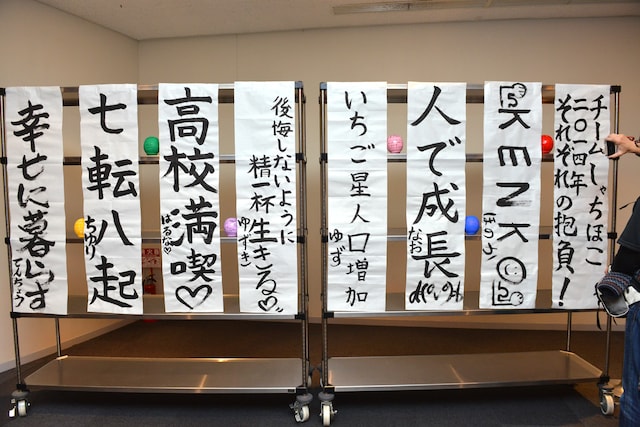 チームしゃちほこ
二〇一四年
それぞれの抱負!
KENKO
人で成長
なお
いちご星人口増加
ゆず
後悔しないように
精一杯生きる♡
ゆずき
高校満喫♡
はるな
七転八起
ちゆり
幸せに暮らす
てんちょう